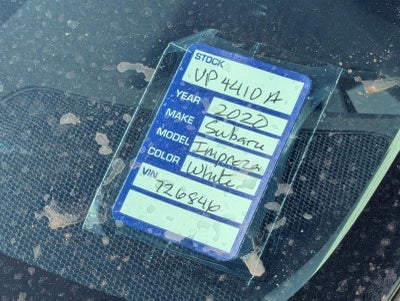 STOCK
VP4410A
YEAR 2020
MAKE Subaru
MODEL Impreza
COLOR White
VIN
726846